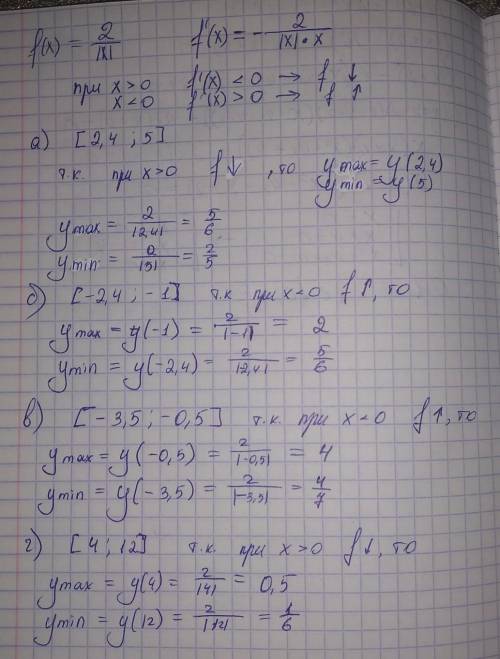 f(x) = 2/|x|     f'(x) = - 2/(|x|·x)
при x > 0   f'(x) < 0 → f ↓
x < 0   f'(x) > 0 → f ↑
а) [2,4 ; 5]
т.к при x > 0   f ↓ , то   y max = y(2,4)
y min = y(5)
y max = 2/|2,4| = 5/6
y min = 2/|5| = 2/5
б) [-2,4 ; -1]   т.к при x < 0   f ↑, то
y max = y(-1) = 2/|-1| = 2
y min = y(-2,4) = 2/|2,4| = 5/6
в) [-3,5 ; -0,5]   т.к. при x < 0   f ↑, то
y max = y(-0,5) = 2/|-0,5| = 4
y min = y(-3,5) = 2/|-3,5| = 4/7
г) [4 ; 12]   т.к. при x > 0   f ↓, то
y max = y(4) = 2/|4| = 0,5
y min = y(12) = 2/|12| = 1/6